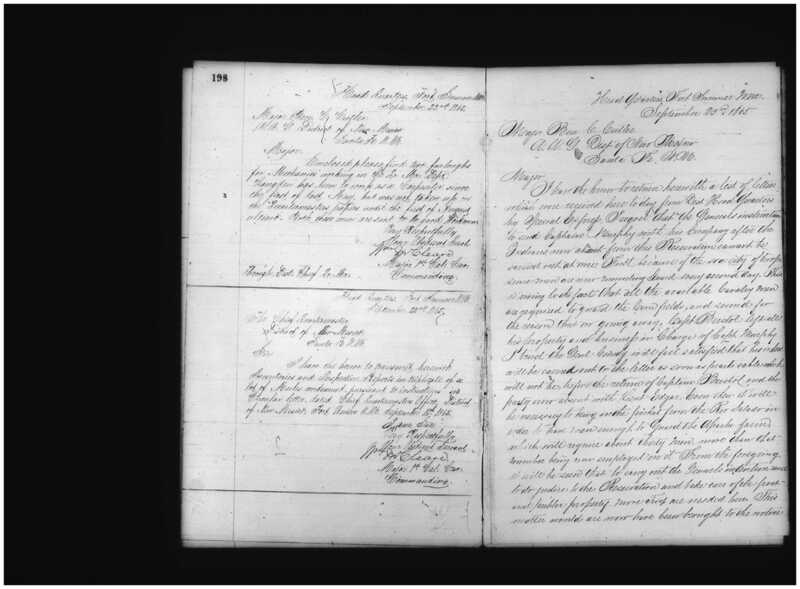 198
Head Quarters Fort Sumner N.M.
September 22nd 1865
Major Ben C. Cutler
A.A.G. District of New Mexico
Santa Fe N.M.
Major
Enclosed please find two furloughs
for Mechanics working in Qr. Mr. Dept.
has been to work as a Carpenter since
the first of last May, but was not taken up on
the Quartermasters papers until the first of August
Both these men are sent to be good Workmen
Very Respectfully
Your Obedient Servt
Wm McCleave
Major 1st Cal. Cav.
Commanding
Through Dist. Chief Qr. Mr.
Head Quarters Fort Sumner N.M.
September 22nd 1865
The Chief Quartermaster
District of New Mexico
Santa Fe N.M.
Sir
I have the honor to transmit herewith
Inventories and Inspection Reports in triplicate of a
lot of Mules condemned pursuant to instructions in
Circular letter dated Chief Quartermasters Office, District
of New Mexico, Fort Union N.M. September 1865
I am Sir
Very Respectfully
Your Obedient Servant
Wm McCleave
Major 1st Cal. Cav.
Commanding
Head Quarters, Fort Sumner N.M.
September 23d 1865
Major Ben C. Cutler
A.A.G. Dist of New Mexico
Santa Fe, N.M.
Major
I have the honor to return herewith a list of letters
which were received here to day from Dist Head Quarters
by Special Express. I regret that the Generals instructions
to send Captain Murphy with his Company after the
Indians now absent from this Reservation cannot be
carried out at once. First, because of the scarcity of troops
some men are now mounting Guard every second day. This
is owing to the fact that all the available Cavalry men
are required to guard the Corn fields, and second for
the reason that on going away, Capt Bristol left all
his property and business in Charge of Capt Murphy
I trust the Genl Comdg will feel satisfied that his orders
will be carried out to the letter as soon as practicable which
will not be before the return of Captain Bristol and the
party now absent with Lieut Edgar. Even then it will
be necessary to bring in the picket from the Rio
order to have men enough to Guard the Apache farm
which will require about thirty men more than that
number being now employed on it. From the foregoing
it will be seen that to carry out the Generals instructions and
to do justice to the Reservation and take care of the
and public property more troops are needed here. This
matter would ere now have been brought to the notice